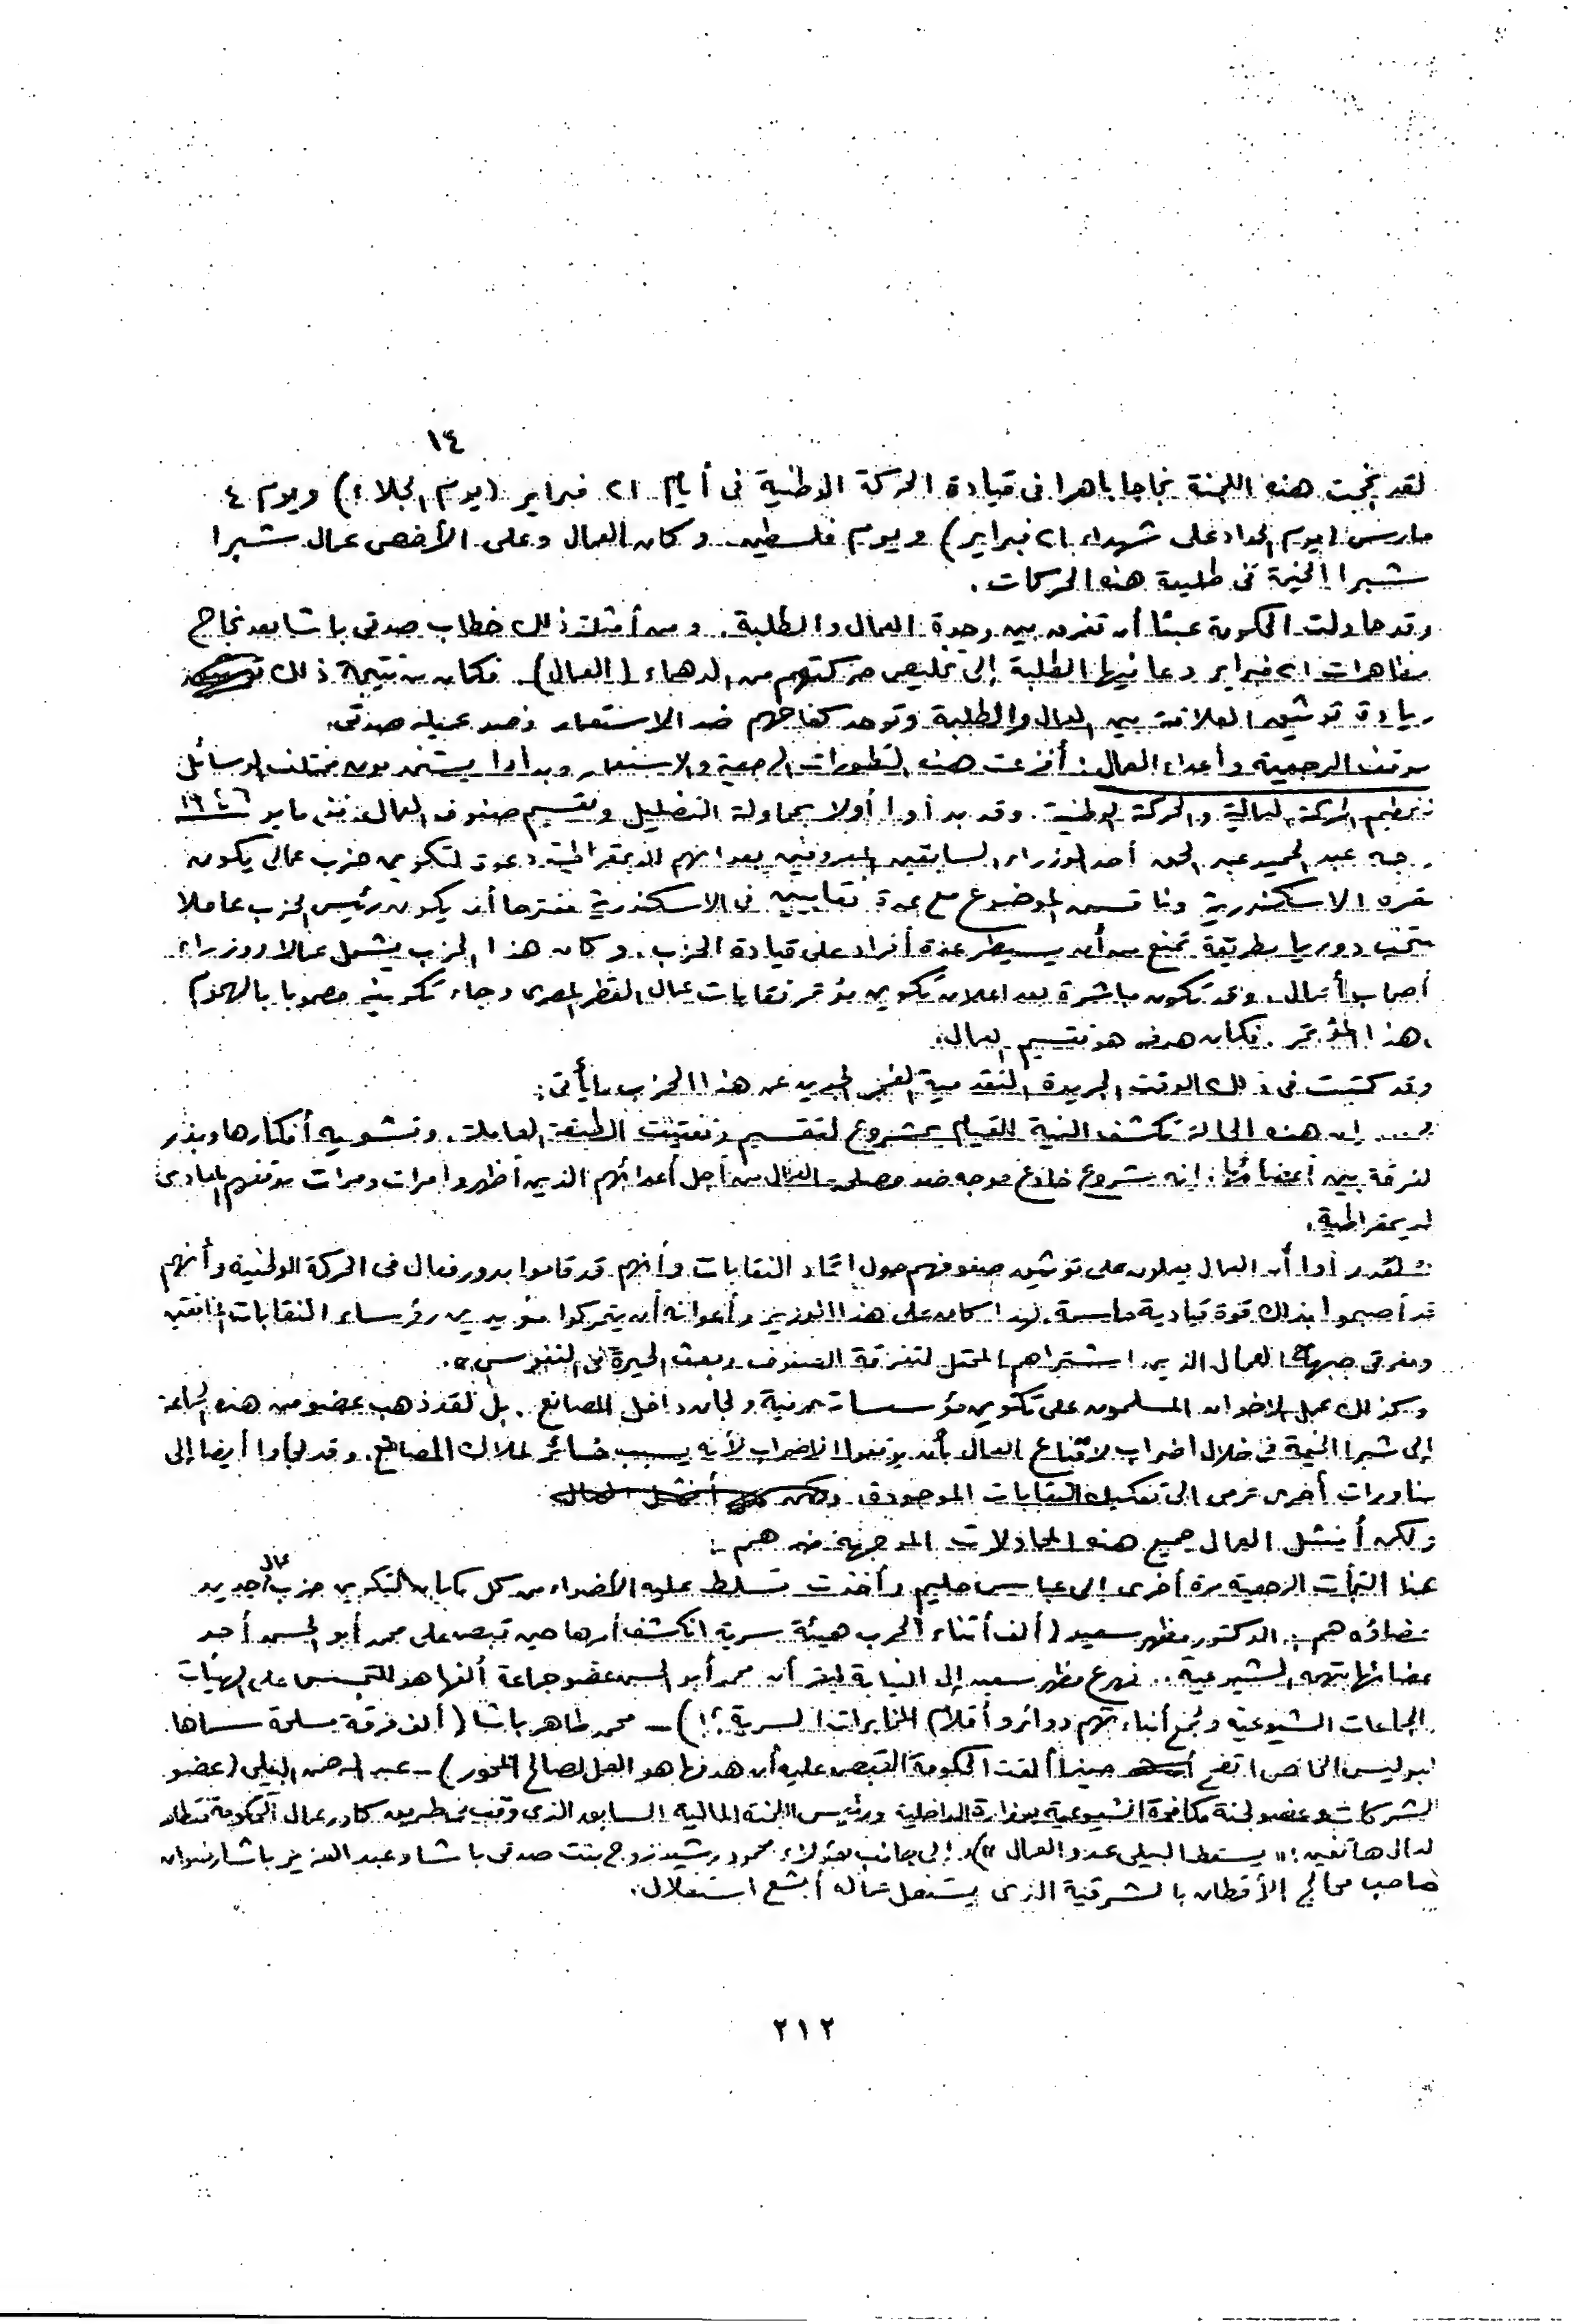 ١٤
لقد نجحت هذه اللجنة نجاحا باهرا فى قيادة الحركة الوطنية فى أيام ٢١ فبراير (يوم الجلاء) ويوم ٤
مارس (يوم الحداد على شهداء ٢١ فبراير) ويوم فلسطين. وكان العمال وعلى الأخص عمال شبرا
شبرا الخيمة فى طليعة هذه الحركات.
وقد حاولت الحكومة عبثا أن تفرق بين وحدة العمال والطلبة. ومن أمثلة ذلك خطاب صدقى باشا بعد نجاح
مظاهرات ٢١ فبراير دعا فيها الطلبة إلى تخليص حركتهم من الدهماء (العمال). فكان من نتيجة ذلك
زيادة توثيق العلاقة بين العمال والطلبة وتوحد كفاحهم ضد الاستعمار وضد عميله صدقى.
موقف الرجعية وأعداء العمال: أفزعت هذه التطورات الرجعية والاستعمار وبدأوا يستخدمون مختلف الوسائل
لتحطيم الحركة العمالية والحركة الوطنية. وقد بدأوا أولا بمحاولة التضليل وتقسيم صفوف العمال ففى مايو ١٩٤٦
وجه عبد الحميد عبد الحق أحد الوزراء السابقين المعروفين بعدائهم للديمقراطية دعوة لتكوين حزب عمالى يكون
مقره الاسكندرية وناقش الموضوع مع عدة نقابيين فى الاسكندرية مقترحا أن يكون رئيس الحزب عاملا
ينتخب دوريا بطريقة تمنع من أن يسيطر عدة أفراد على قيادة الحزب. وكان هذا الحزب يشمل عمالا ووزراء
أصحاب أعمال. وقد تكون مباشرة بعد اعلان تكوين مؤتمر نقابات عمال القطر المصرى وجاء تكوينه مصحوبا بالهجوم
هذا المؤتمر. فكان هدفه هو تقسيم العمال.
وقد كتبت فى ذلك الوقت الجريدة التقدمية الفجر الجديد عن هذا الحزب ما يأتى:
"... ان هذه الحالة تكشف النية للقيام بمشروع لتقسيم وتفتيت الطبقة العاملة. وتشويه أفكارها وبذر
الفرقة بين أعضائها. انه مشروع خادع موجه ضد مصلحة العمال من أجل أعدائهم الذين أظهروا مرات ومرات موقفهم المعادى
للديمقراطية.
"لقد رأوا أن العمال يعملون على توثيق صفوفهم حول اتحاد النقابات وأنهم قد قاموا بدور فعال فى الحركة الوطنية وأنهم
قد أصبحوا بذلك قوة قيادية حاسمة. لهذا كان على هذا الوزير وأعوانه أن يتحركوا مؤيدين رؤساء النقابات المنافقين
ومفرقى جبهة العمال الذين اشتراهم المحتل لتفرقة الصفوف وبعث الحيرة فى النفوس".
وكذلك عمل الاخوان المسلمون على تكوين مؤسسات مدنية ولجان داخل المصانع. بل لقد ذهب عضو من هذه الجماعة
إلى شبرا الخيمة فى خلال اضراب لاقناع العمال بأن يوقفوا الاضراب لأنه يسبب خسائر لملاك المصانع. وقد لجأوا أيضا إلى
مناورات أخرى ترمى الى تفكيك النقابات الموجودة.
ولكن أفشل العمال جميع هذه المحاولات الموجهة ضدهم:
عندئذ التجأت الرجعية مرة أخرى إلى عباس حليم وأخذت تسلط عليه الأضواء من كل جانب لتكوين حزب عمال جديد
أعضاؤه هم: الدكتور مظهر سعيد (ألف أثناء الحرب هيئة سرية انكشف أمرها حين قبض على محمد أبو الحسن أحد
أعضائها بتهمة الشيوعية.. فهرع مظهر سعيد إلى النيابة ليقر أن محمد أبو الحسن عضو جماعة ألفها هو للتجسس على الهيئات
والجماعات الشيوعية وجمع أنباء تهم دوائر وأقلام المخابرات السرية؟!) — محمد طاهر باشا (ألف فرقة مسلحة سماها
البوليس الخاص اتضح حينما ألقت الحكومة القبض عليه أن هدفها هو العمل لصالح المحور) — عبد الرحمن البيلى (عضو
الشركات وعضو لجنة مكافحة الشيوعية بوزارة الداخلية ورئيس اللجنة المالية السابق الذى وقف فى طريق كادر عمال الحكومة فتظاهر
العمال هاتفين: "يسقط البيلى عدو العمال"). إلى جانب هؤلاء محمود رشيد زوج بنت صدقى باشا وعبد العزيز باشا رضوان
صاحب محالج الأقطان بالشرقية الذى يستغل عماله أبشع استغلال.
٢١٢